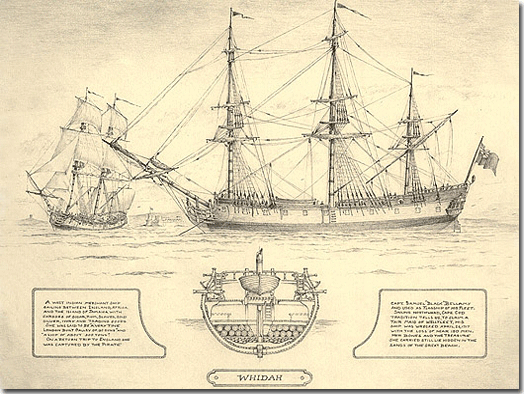 A WEST INDIAN MERCHANT SHIP
SAILING BETWEEN ENGLAND, AFRICA
AND THE ISLAND OF JAMAICA WITH
CARGOES OF SUGAR, RUM, SLAVES, GOLD
SILVER, IVORY AND TRADING GOODS
SHE WAS SAID TO BE "A VERY FINE
LONDON BUILT GALLEY OF 28 GUNS" AND
"A SHIP OF ABOUT 300 TONS."
ON A RETURN TRIP TO ENGLAND SHE
WAS CAPTURED BY THE PIRATE
CAPT. SAMUEL "BLACK" BELLAMY
AND USED AS FLAGSHIP OF HIS FLEET.
SAILING NORTHWARD, CAPE COD
TRADITION TELLS US, TO CLAIM A
FAIR MAID OF WELLFLEET, HIS
SHIP WAS WRECKED APRIL 26, 1717
WITH THE LOSS OF NEAR 150 MEN.
HER BONES AND THE TREASURE
SHE CARRIED STILL LIE HIDDEN IN THE
SANDS OF THE GREAT BEACH.
WHIDAH